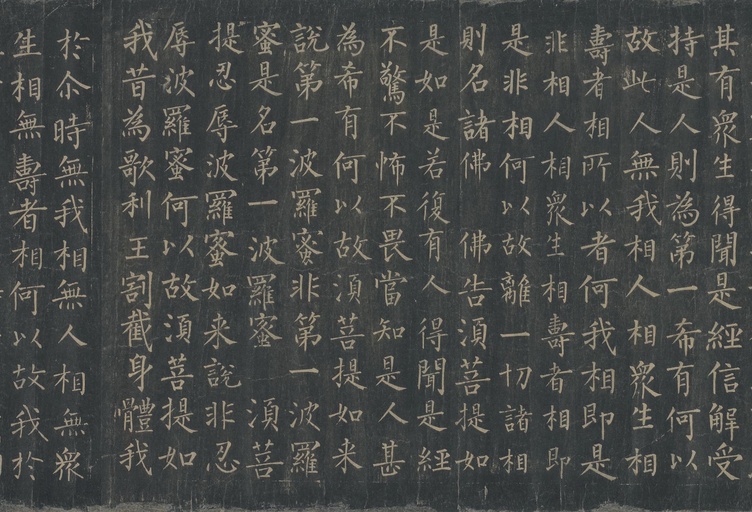 其有衆生得聞是經信解受
持是人則為第一希有何以
故此人無我相人相衆生相
壽者相所以者何我相即是
非相人相衆生相壽者相即
是非相何以故離一切諸相
則名諸佛 佛告須菩提如
是如是若復有人得聞是經
不驚不怖不畏當知是人甚
為希有何以故須菩提如来
說第一波羅蜜非第一波羅
蜜是名第一波羅蜜 須菩
提忍辱波羅蜜如来說非忍
辱波羅蜜何以故須菩提如
我昔為歌利王割截身體我
於尒時無我相無人相無衆
生相無壽者相何以故我於